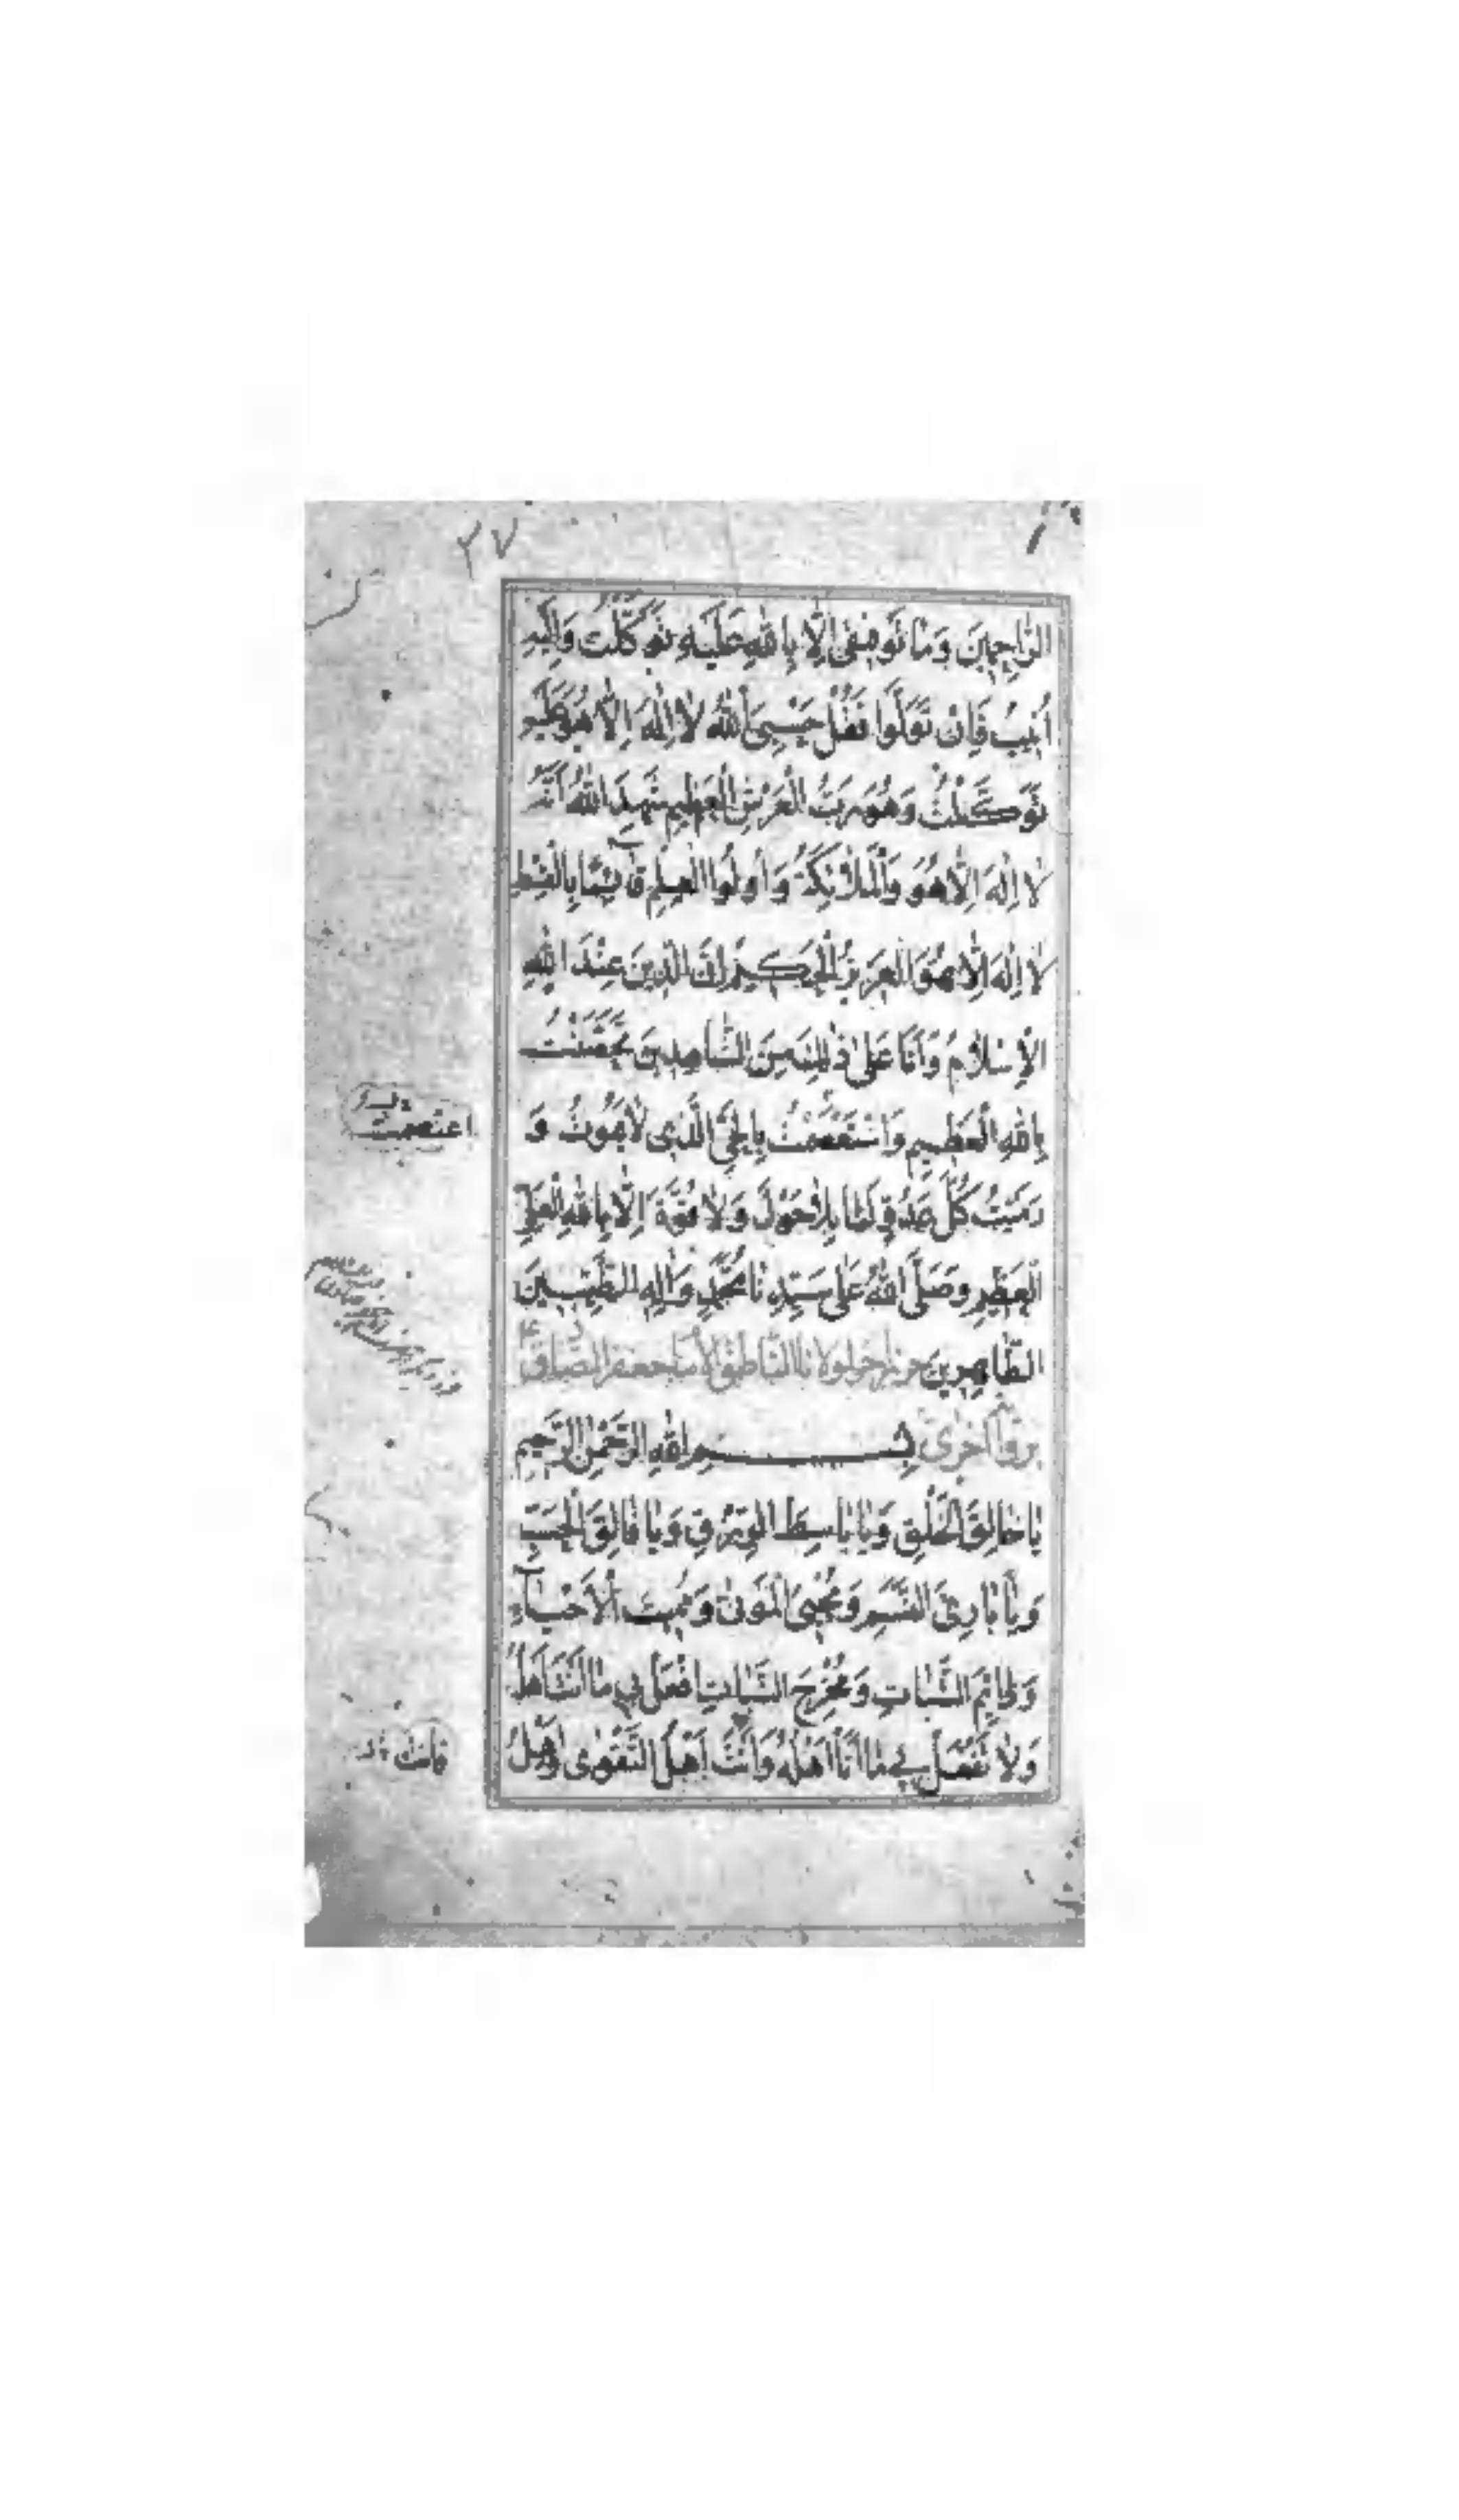 ٢٧
الرَّاحِمِينَ وَمَا تَوْفِيقِي إِلَّا بِاللهِ عَلَيْهِ تَوَكَّلْتُ وَإِلَيْهِ
أُنِيبُ فَإِنْ تَوَلَّوْا فَقُلْ حَسْبِيَ اللهُ لَا إِلٰهَ إِلَّا هُوَ عَلَيْهِ
تَوَكَّلْتُ وَهُوَ رَبُّ الْعَرْشِ الْعَظِيمِ شَهِدَ اللهُ أَنَّهُ
لَا إِلٰهَ إِلَّا هُوَ وَالْمَلَائِكَةُ وَأُولُوا الْعِلْمِ قَائِمًا بِالْقِسْطِ
لَا إِلٰهَ إِلَّا هُوَ الْعَزِيزُ الْحَكِيمُ إِنَّ الدِّينَ عِنْدَ اللهِ
الْإِسْلَامُ وَأَنَا عَلَى ذٰلِكَ مِنَ الشَّاهِدِينَ تَحَصَّنْتُ
بِاللهِ الْعَظِيمِ وَاسْتَعْصَمْتُ بِالْحَيِّ الَّذِي لَا يَمُوتُ وَ
اعتصمت
رَمَيْتُ كُلَّ عَدُوٍّ لَنَا بِلَا حَوْلَ وَلَا قُوَّةَ إِلَّا بِاللهِ الْعَلِيِّ
الْعَظِيمِ وَصَلَّى اللهُ عَلَى سَيِّدِنَا مُحَمَّدٍ وَآلِهِ الطَّيِّبِينَ
الطَّاهِرِينَ حرز آخر لمولانا الناطق الامام جعفر الصادق ع
برواية أخرى بِسْمِ اللهِ الرَّحْمٰنِ الرَّحِيمِ
يَا خَالِقَ الْخَلْقِ وَيَا بَاسِطَ الرِّزْقِ وَيَا فَالِقَ الْحَبِّ
وَيَا بَارِئَ النَّسَمِ وَمُحْيِيَ الْمَوْتٰى وَمُمِيتَ الْأَحْيَاءِ
وَدَائِمَ الثَّبَاتِ وَمُخْرِجَ النَّبَاتِ افْعَلْ بِي مَا أَنْتَ أَهْلُهُ
وَلَا تَفْعَلْ بِي مَا أَنَا أَهْلُهُ وَأَنْتَ أَهْلُ التَّقْوٰى وَأَهْلُ
فانك